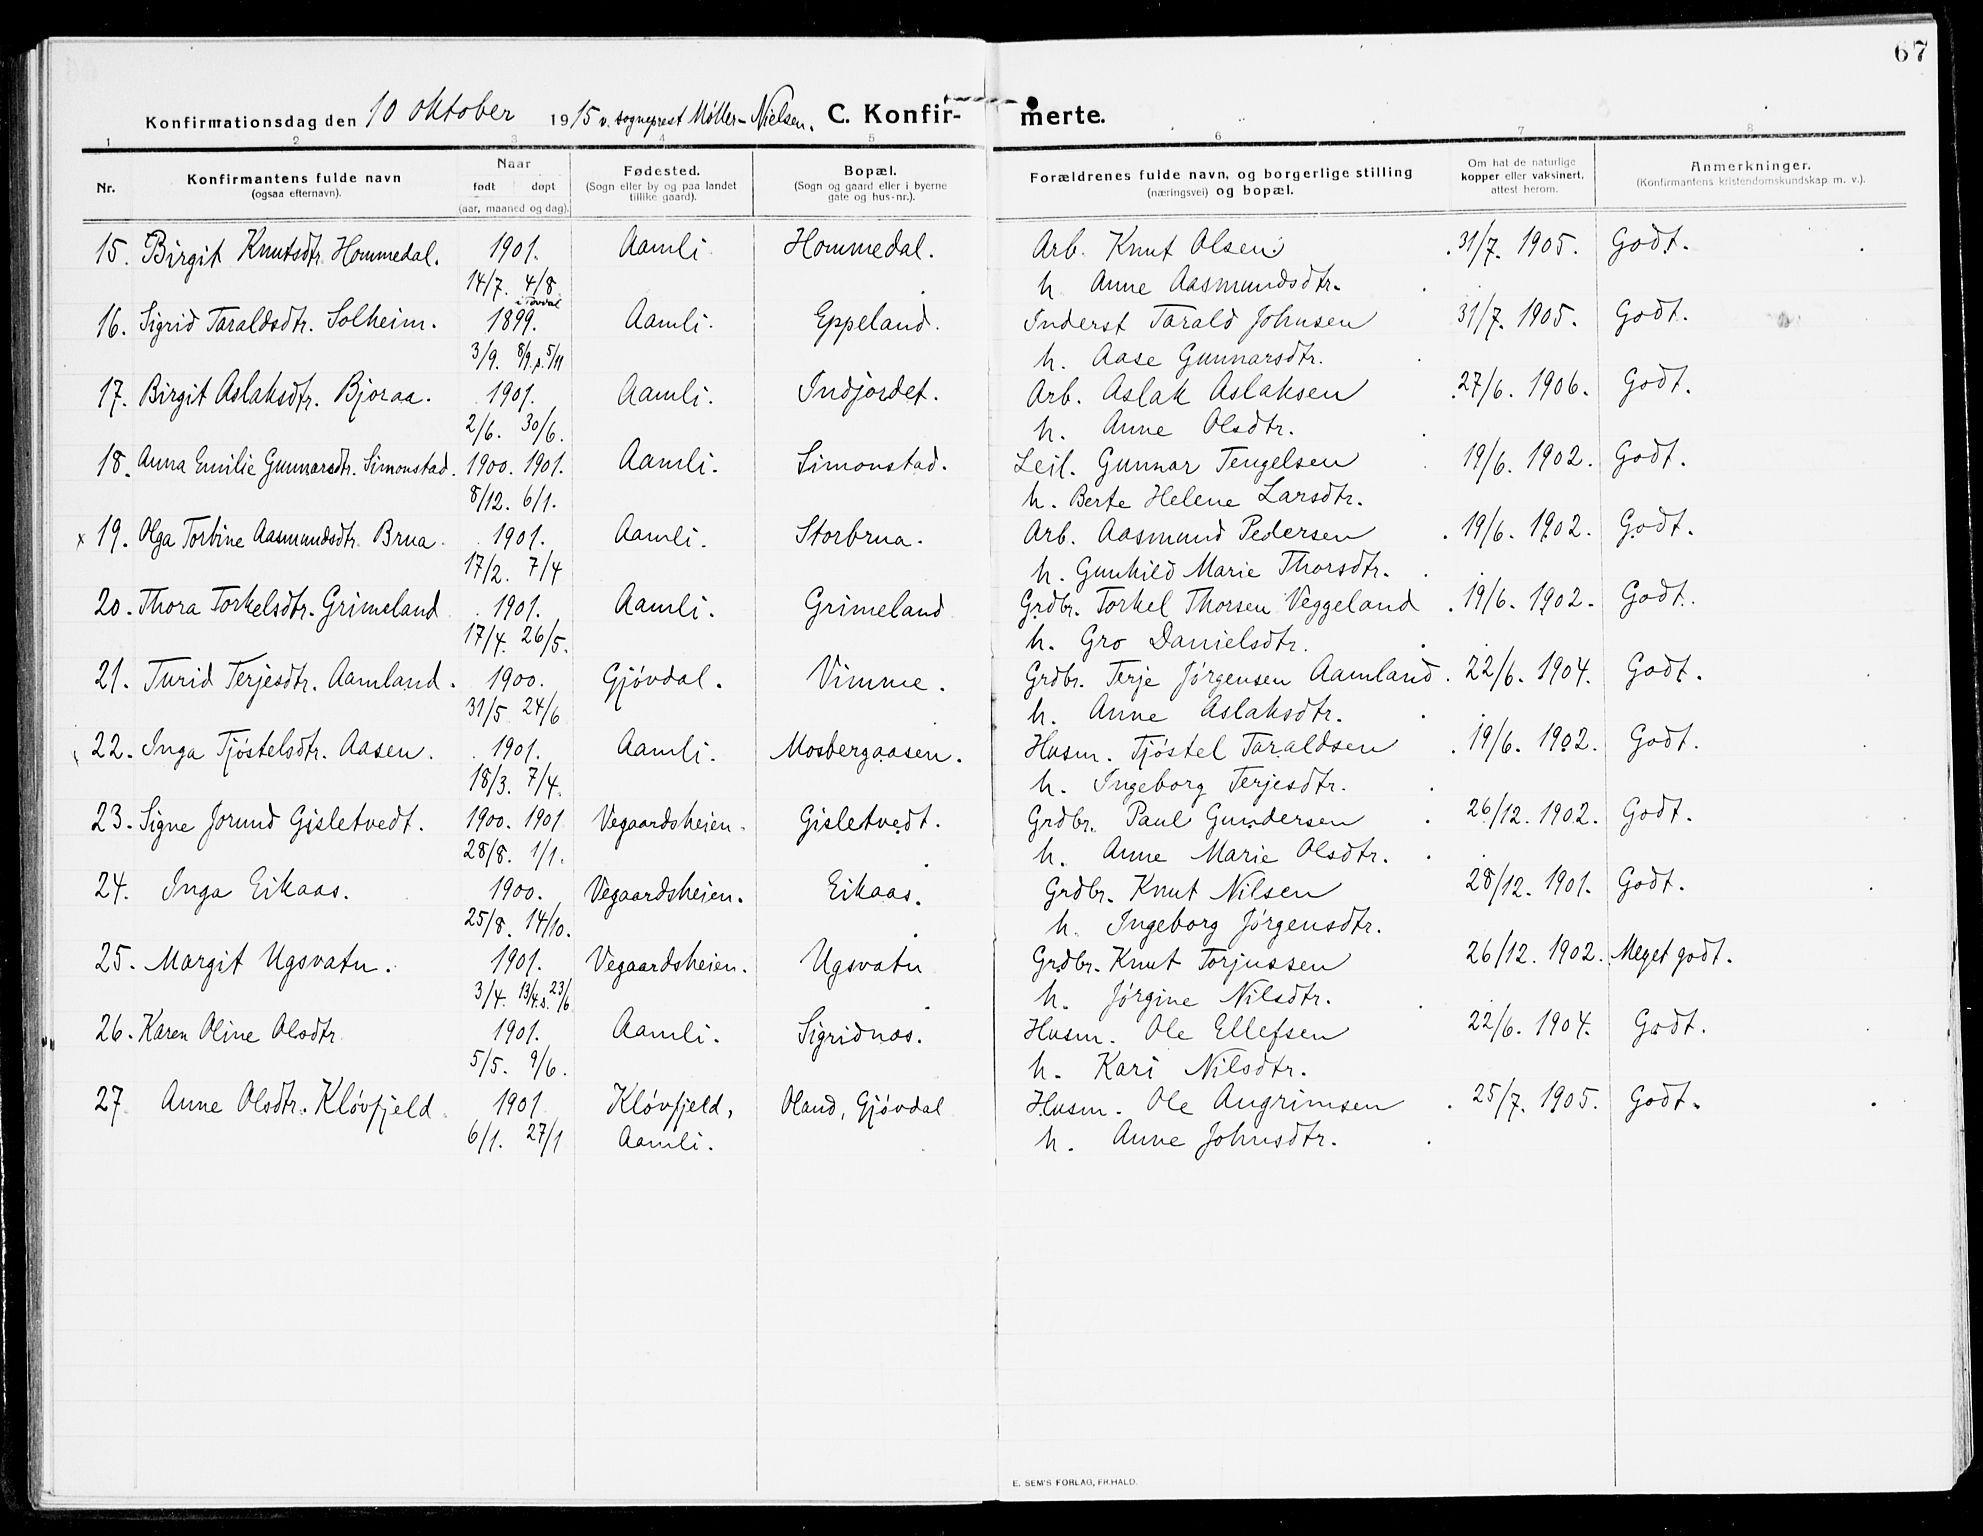 67
Konfirmationsdag den 10 oktober 1915 v. sogneprest Møller-Nielsen. C. Konfir- merte.
1 2 3 4 5 6 7 8
Nr. Konfirmantens fulde navn (ogsaa efternavn). Naar født døpt (aar, maaned og dag). Fødested. (Sogn eller by og paa landet tillike gaard). Bopæl. (Sogn og gaard eller i byerne gate og hus-nr.). Forældrenes fulde navn, og borgerlige stilling (næringsvei) og bopæl. Om hat de naturlige kopper eller vaksinert, attest herom. Anmerkninger. (Konfirmantens kristendomskundskap m. v.).
15. Birgit Knutsdtr. Hommedal. 1901. Aamli Hommedal. Arb. Knut Olsen 31/7. 1905. Godt.
14/7. 4/8 i Tovdal h. Anne Aasmundsdtr.
16. Sigrid Taraldsdtr. Solheim. 1899. Aamli. Eppeland. Inderst Tarald Johnsen 31/7. 1905. Godt.
3/9. 8/9. s. 5/11 h. Aase Gunnarsdtr.
17. Birgit Aslaksdtr. Bjoraa. 1901. Aamli. Indjordet. Arb. Aslak Aslaksen 27/6. 1906. Godt.
2/6. 30/6. h. Anne Olsdtr.
18. Anna Emilie Gunnarsdtr. Simonstad. 1900. 1901. Aamli. Simonstad. Leil. Gunnar Tengelsen 19/6. 1902. Godt.
8/12. 6/1. h. Berte Helene Larsdtr.
x 19. Olga Torbine Aasmundsdtr. Brua. 1901. Aamli. Storbrua. Arb. Aasmund Pedersen 19/6. 1902. Godt.
17/2. 7/4 h. Gunhild Marie Thorsdtr.
20. Thora Torkelsdtr. Grimeland 1901. Aamli. Grimeland Grdbr. Torkel Thorsen Veggeland 19/6. 1902. Godt.
17/4. 26/5. h. Gro Danielsdtr.
21. Turid Terjesdtr. Aamland. 1900. Gjøvdal. Vimme. Grdbr. Terje Jørgensen Aamland. 22/6. 1904. Godt.
31/5 24/6 h. Anne Aslaksdtr.
22. Inga Tjøstelsdtr. Aasen. 1901. Aamli. Mosbergaasen. Husm. Tjøstel Taraldsen 19/6. 1902. Godt.
18/3. 7/4. h. Ingeborg Terjesdtr.
23. Signe Jorund Gisletvedt. 1900. 1901 Vegaardsheien. Gisletvedt. Grdbr. Paul Gundersen 26/12. 1902. Godt.
28/8. 1/1. h. Anne Marie Olsdtr.
24. Inga Eikaas. 1900. Vegaardsheien. Eikaas. Grdbr. Knut Nilsen 28/12. 1901. Godt.
25/8. 14/10. h. Ingeborg Jørgensdtr.
25. Margit Ugsvatn. 1901. Vegaardsheien. Ugsvatn Grdbr. Knut Torjussen 26/12. 1902. Meget godt.
3/4. 13/4. s. 23/6 h. Jørgine Nilsdtr.
26. Karen Oline Olsdtr. 1901. Aamli. Sigridnas. Husm. Ole Ellefsen 22/6. 1904. Godt.
5/5. 9/6. h. Kari Nilsdtr.
27 Anne Olsdtr. Kløvfjeld 1901 Kløvfjeld, Oland, Gjøvdal Husm. Ole Angrimsen 25/7. 1905. Godt.
6/1. 27/1 Aamli. h. Anne Johnsdtr.
E. SEM'S FORLAG, FR.HALD.